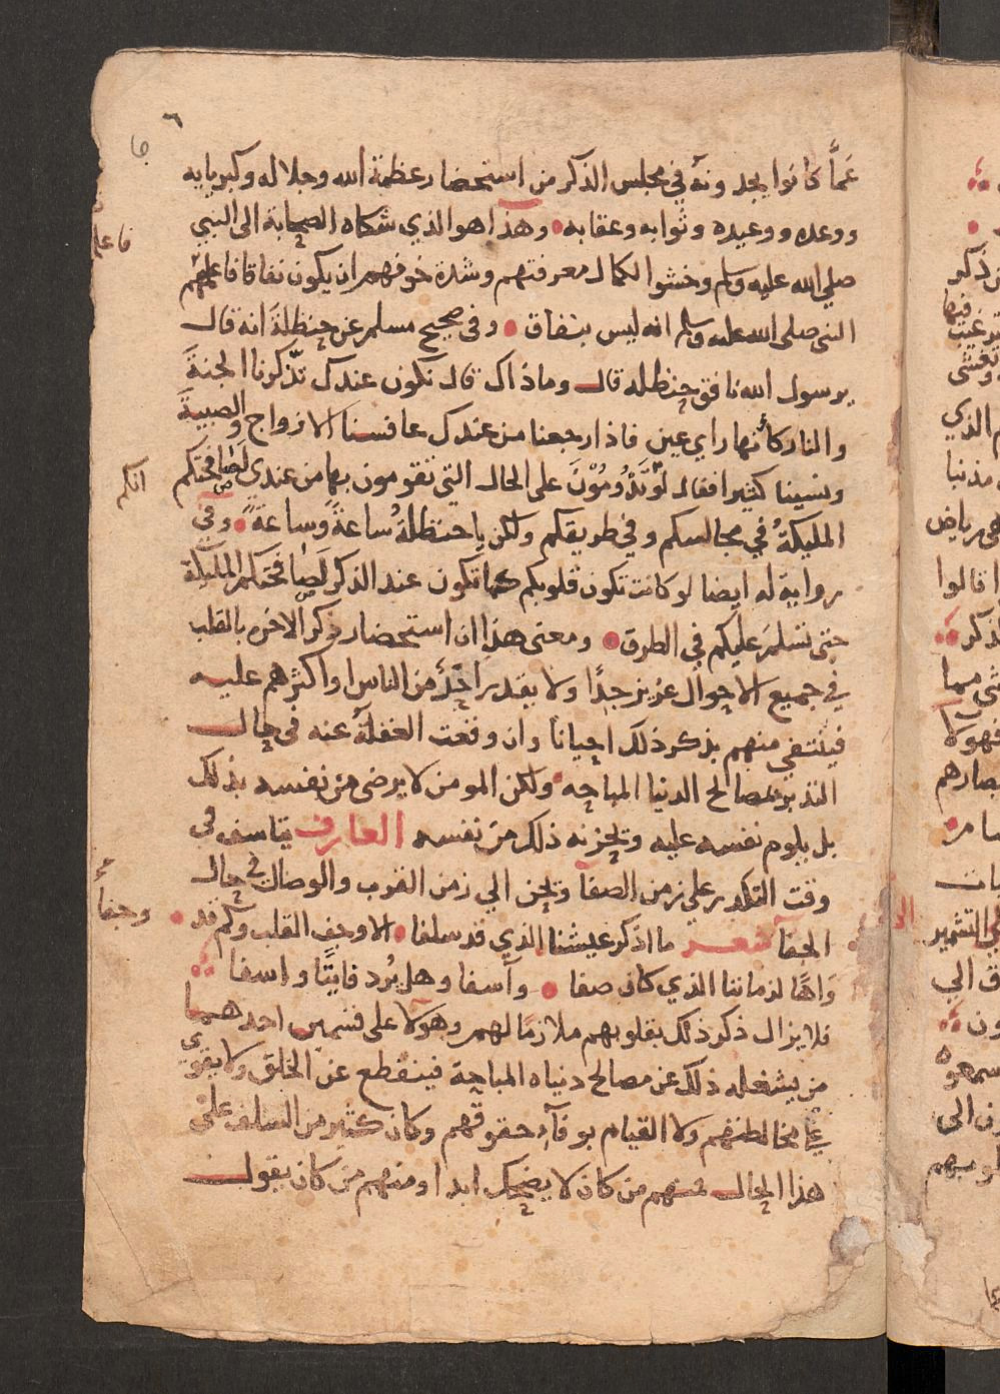 ٦
6
عَمّا كانوا يجدونه في مجلس الذكر من استحضار عظمة الله وجلاله وكبريايه
ووعده ووعيده وثوابه وعقابه • وهذا هو الذي شكاه الصحابة الى النبي
صلي الله عليه وسلم وخشوا لكمال معرفتهم وشدة خوفهم ان يكون نفاقا فاعلمهم
النبى صلى الله عليه وسلم انه ليس بنفاق • وفى صحيح مسلم عن حنظلة انه قال
يرسول الله نافق حنظله قال وماذاك قال نكون عندك تذّكرنا الجنةَ
والنار كأنها راي عين فاذا رجعنا من عندك عافسنا الازواج والصبيةَ
ونسينا كثيرا فقال لو تَدُومُوْنَ على الحال التي تقومون بها من عندى لصافحتكم
انكم
المليكةُ في مجالسكم وفي طريقكم ولكن ياحنظلةُ ساعةً وساعةً • وفي
رواية له ايضا لو كانت تكون قلوبكم كما تكون عند الذكر لَصافحتكم المليكة
حتى تسلمَ عليكم في الطرق • ومعنى هذا ان استحضار ذكر الاخره بالقلب
في جميع الاحوال عزيز جدًا ولا يقدر احدٌ من الناس او اكثرهم عليه
فيكتفي منهم بذكر ذلك احياناً وان وقعت الغفلةُ عنه فى حال
التدبر لمصالح الدنيا المباحه • ولكن المومن لا يرضى من نفسه بذلك
بل يلوم نفسه عليه ويحزنه ذلك من نفسه العارف يتاسف فى
وقت التكدر على زمن الصفا ويحن الي زمن القرب والوصال في حال
الجفا شعر ما اذكر عيشنا الذي قد سلفا • الا وجف القلب وكم قد •
وجفاً
وَاهًا لزماننا الذي كان صفا • وآسفا وهل يُرد فايتًا واسفا
فلا يزال ذكر ذلك بقلوبهم ملازمًا لهم وهولا على قسمين احدهما
من يشغله ذلك عن مصالح دنياه المباحة فينقطع عن الخلق ولا يقوي
علي مخالطتهم ولا القيام بوفآءِ حقوقهم وكان كثير من السلف على
هذا الحال فمنهم من كان لا يضحك ابدا ومنهم من كان يقول